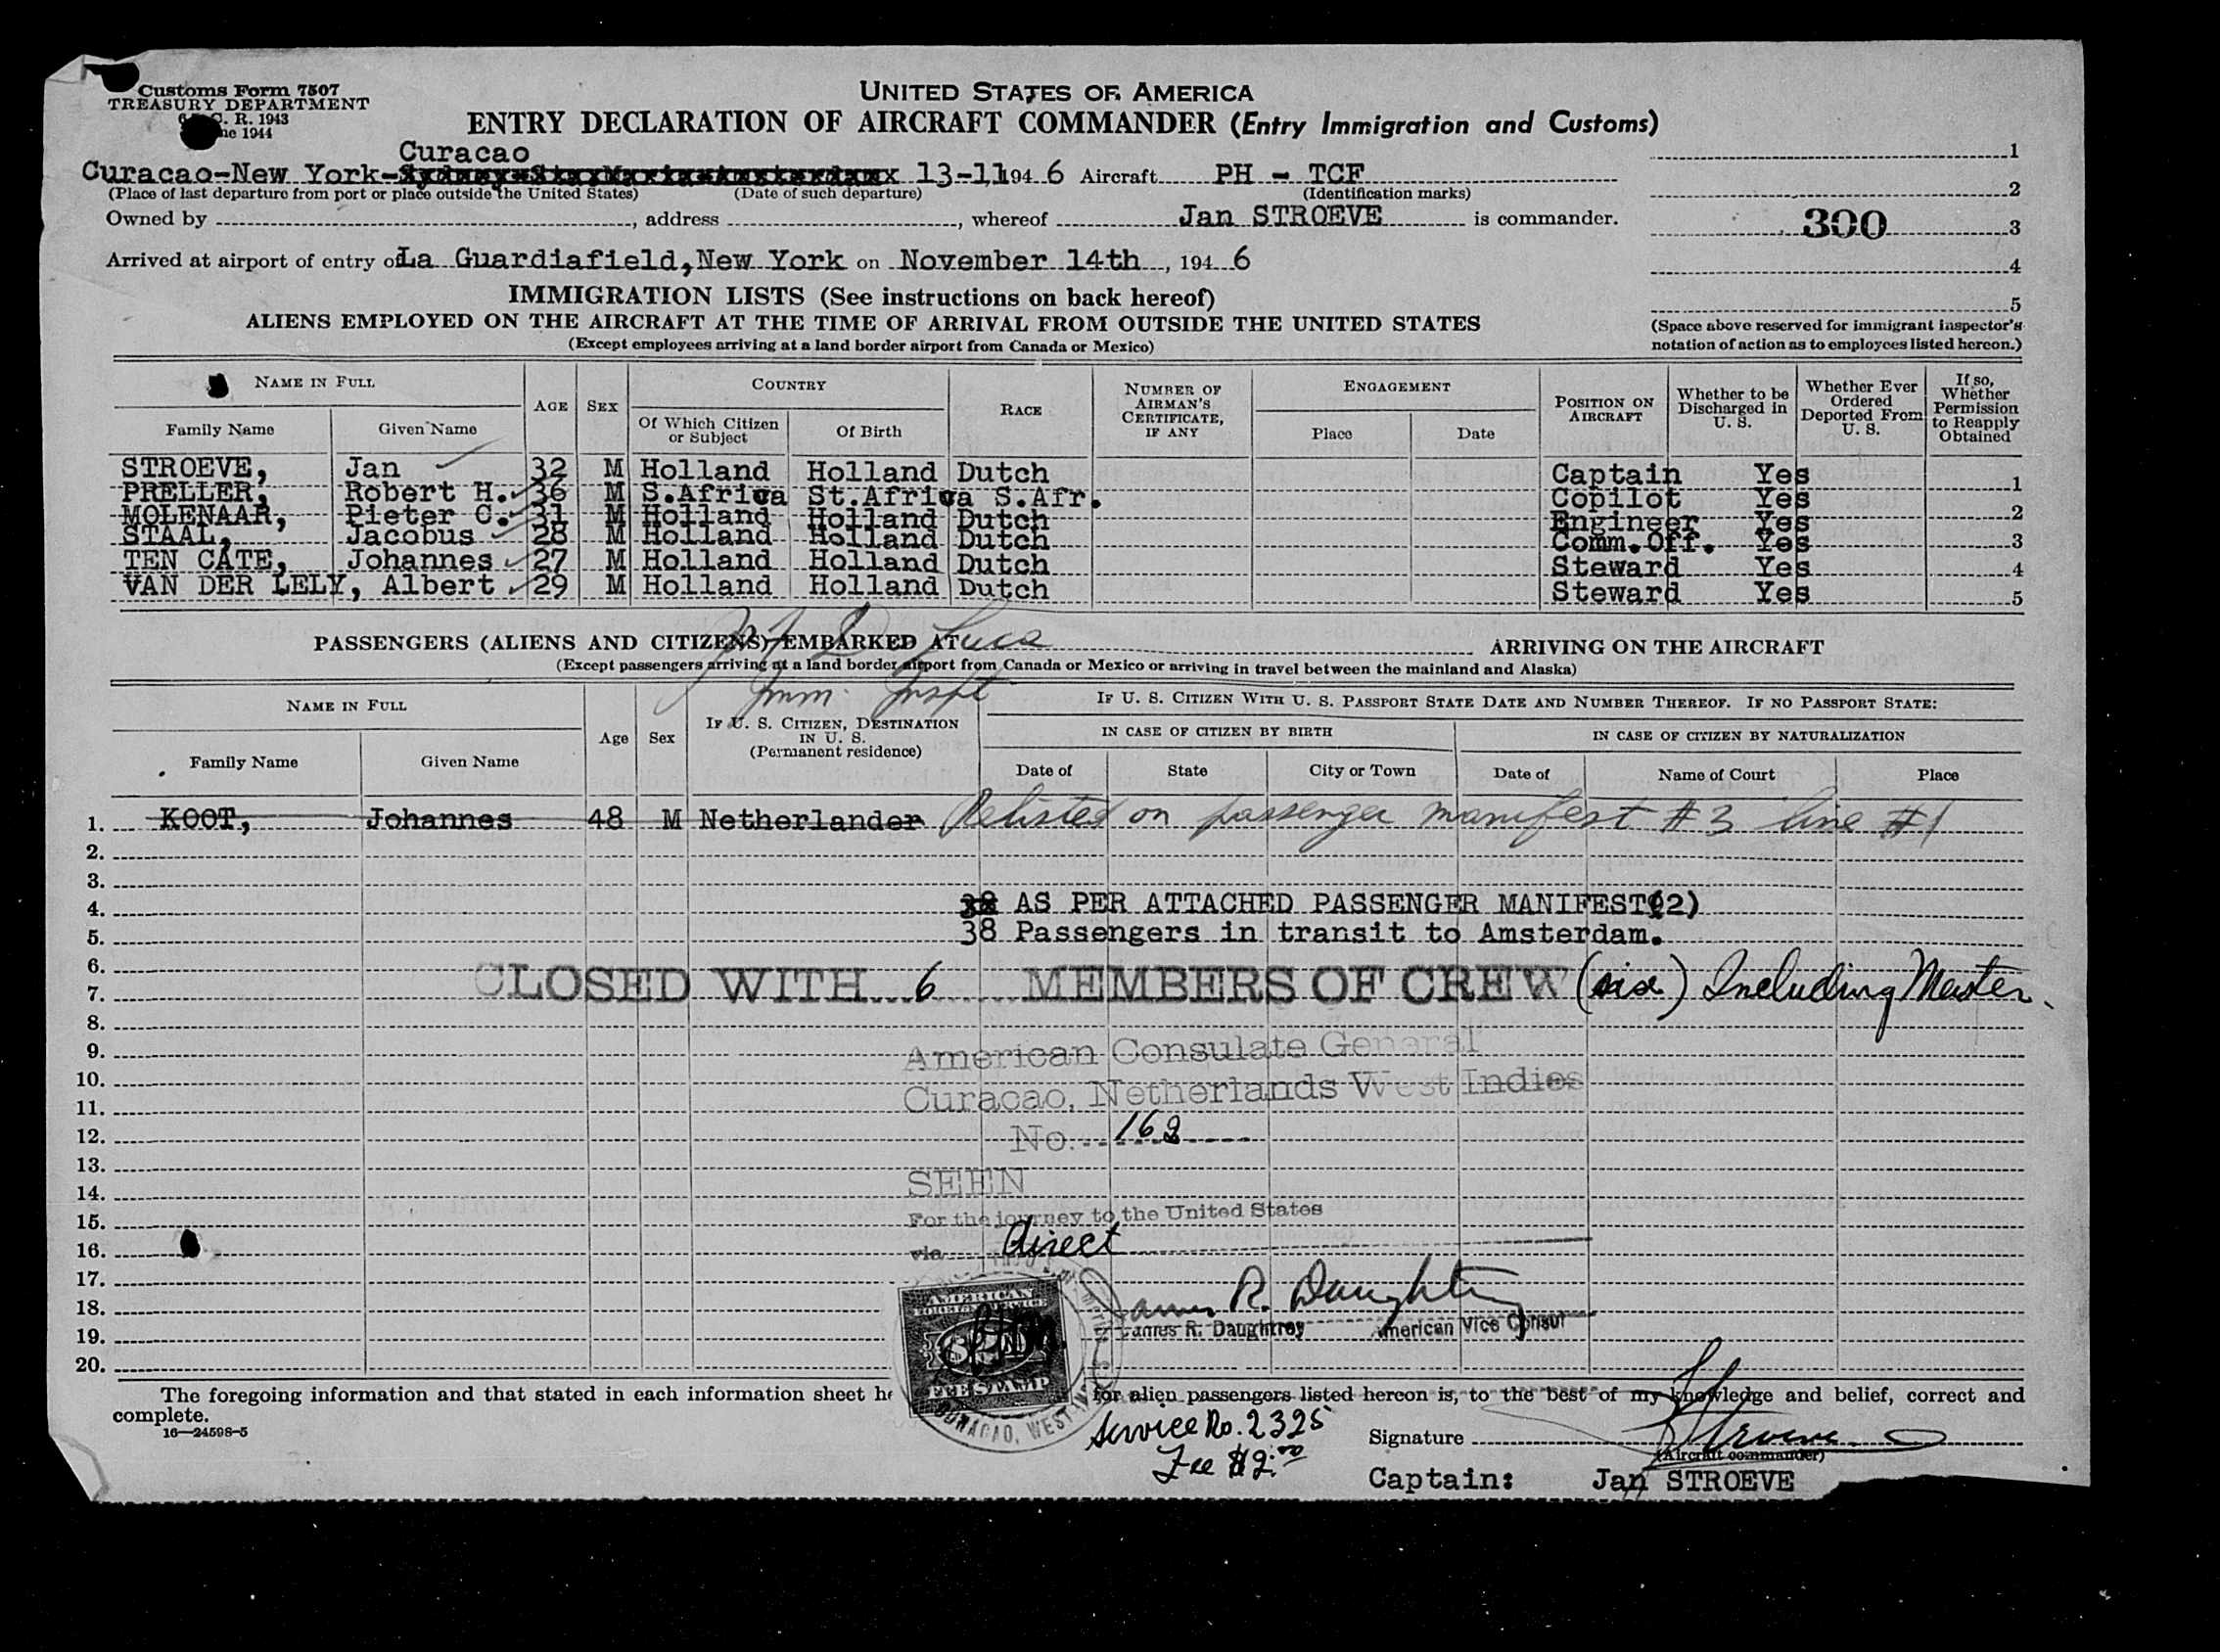 Customs Form 7507
TREASURY DEPARTMENT
C. R. 1943
June 1944
UNITED STATES OF AMERICA
ENTRY DECLARATION OF AIRCRAFT COMMANDER (Entry Immigration and Customs)
Curacao
Curacao-New York- 13-11 1946 Aircraft PH - TCF
(Place of last departure from port or place outside the United States) (Date of such departure) (Identification marks)
Owned by , address , whereof Jan STROEVE is commander.
Arrived at airport of entry of La Guardiafield, New York on November 14th , 1946
1
2
300 3
4
5
(Space above reserved for immigrant inspector's notation of action as to employees listed hereon.)
IMMIGRATION LISTS (See instructions on back hereof)
ALIENS EMPLOYED ON THE AIRCRAFT AT THE TIME OF ARRIVAL FROM OUTSIDE THE UNITED STATES
(Except employees arriving at a land border airport from Canada or Mexico)
NAME IN FULL AGE SEX COUNTRY RACE NUMBER OF AIRMAN'S CERTIFICATE, IF ANY ENGAGEMENT POSITION ON AIRCRAFT Whether to be Discharged in U. S. Whether Ever Ordered Deported From U. S. If so, Whether Permission to Reapply Obtained
Family Name Given Name Of Which Citizen or Subject Of Birth Place Date
STROEVE, Jan 32 M Holland Holland Dutch Captain Yes
PRELLER, Robert H. 36 M S.Africa St.Africa S.Afr. Copilot Yes 1
MOLENAAR, Pieter C. 31 M Holland Holland Dutch Engineer Yes 2
STAAL, Jacobus 28 M Holland Holland Dutch Comm.Off. Yes 3
TEN CATE, Johannes 27 M Holland Holland Dutch Steward Yes 4
VAN DER LELY, Albert 29 M Holland Holland Dutch Steward Yes 5
PASSENGERS (ALIENS AND CITIZENS) EMBARKED AT ARRIVING ON THE AIRCRAFT
(Except passengers arriving at a land border airport from Canada or Mexico or arriving in travel between the mainland and Alaska)
Imm. Inspt
NAME IN FULL Age Sex IF U. S. CITIZEN, DESTINATION IN U. S. (Permanent residence) IF U. S. CITIZEN WITH U. S. PASSPORT STATE DATE AND NUMBER THEREOF. IF NO PASSPORT STATE:
IN CASE OF CITIZEN BY BIRTH IN CASE OF CITIZEN BY NATURALIZATION
Family Name Given Name Date of State City or Town Date of Name of Court Place
1. KOOT, Johannes 48 M Netherlander Relisted on passenger manifest #3 line #1
2.
3.
4. 38 AS PER ATTACHED PASSENGER MANIFEST(2)
5. 38 Passengers in transit to Amsterdam.
6.
7. CLOSED WITH 6 MEMBERS OF CREW (six) Including Master.
8.
9. American Consulate General
10. Curacao, Netherlands West Indies
11.
12. No. 162
13.
14. SEEN
15. For the journey to the United States
16. via direct
17.
18. James R. Daughtrey
19. James R. Daughtrey American Vice Consul
20.
AMERICAN FOREIGN SERVICE
FEE STAMP
CURACAO, WEST
The foregoing information and that stated in each information sheet he for alien passengers listed hereon is, to the best of my knowledge and belief, correct and
complete.
16—24598-5
Service No. 2325
Fee $2.00
Signature J Stroeve
(Aircraft commander)
Captain: Jan STROEVE